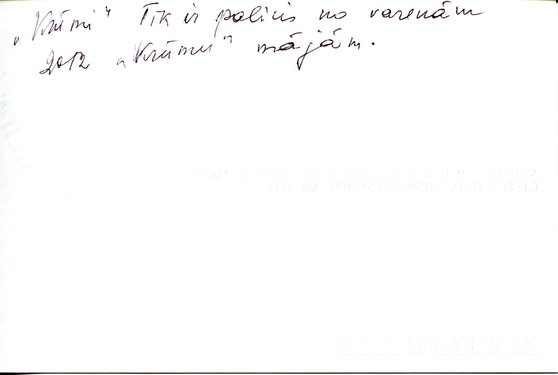 "Krūmi" Tik ir palicis no varenām
2012 "Krūmu" mājām.